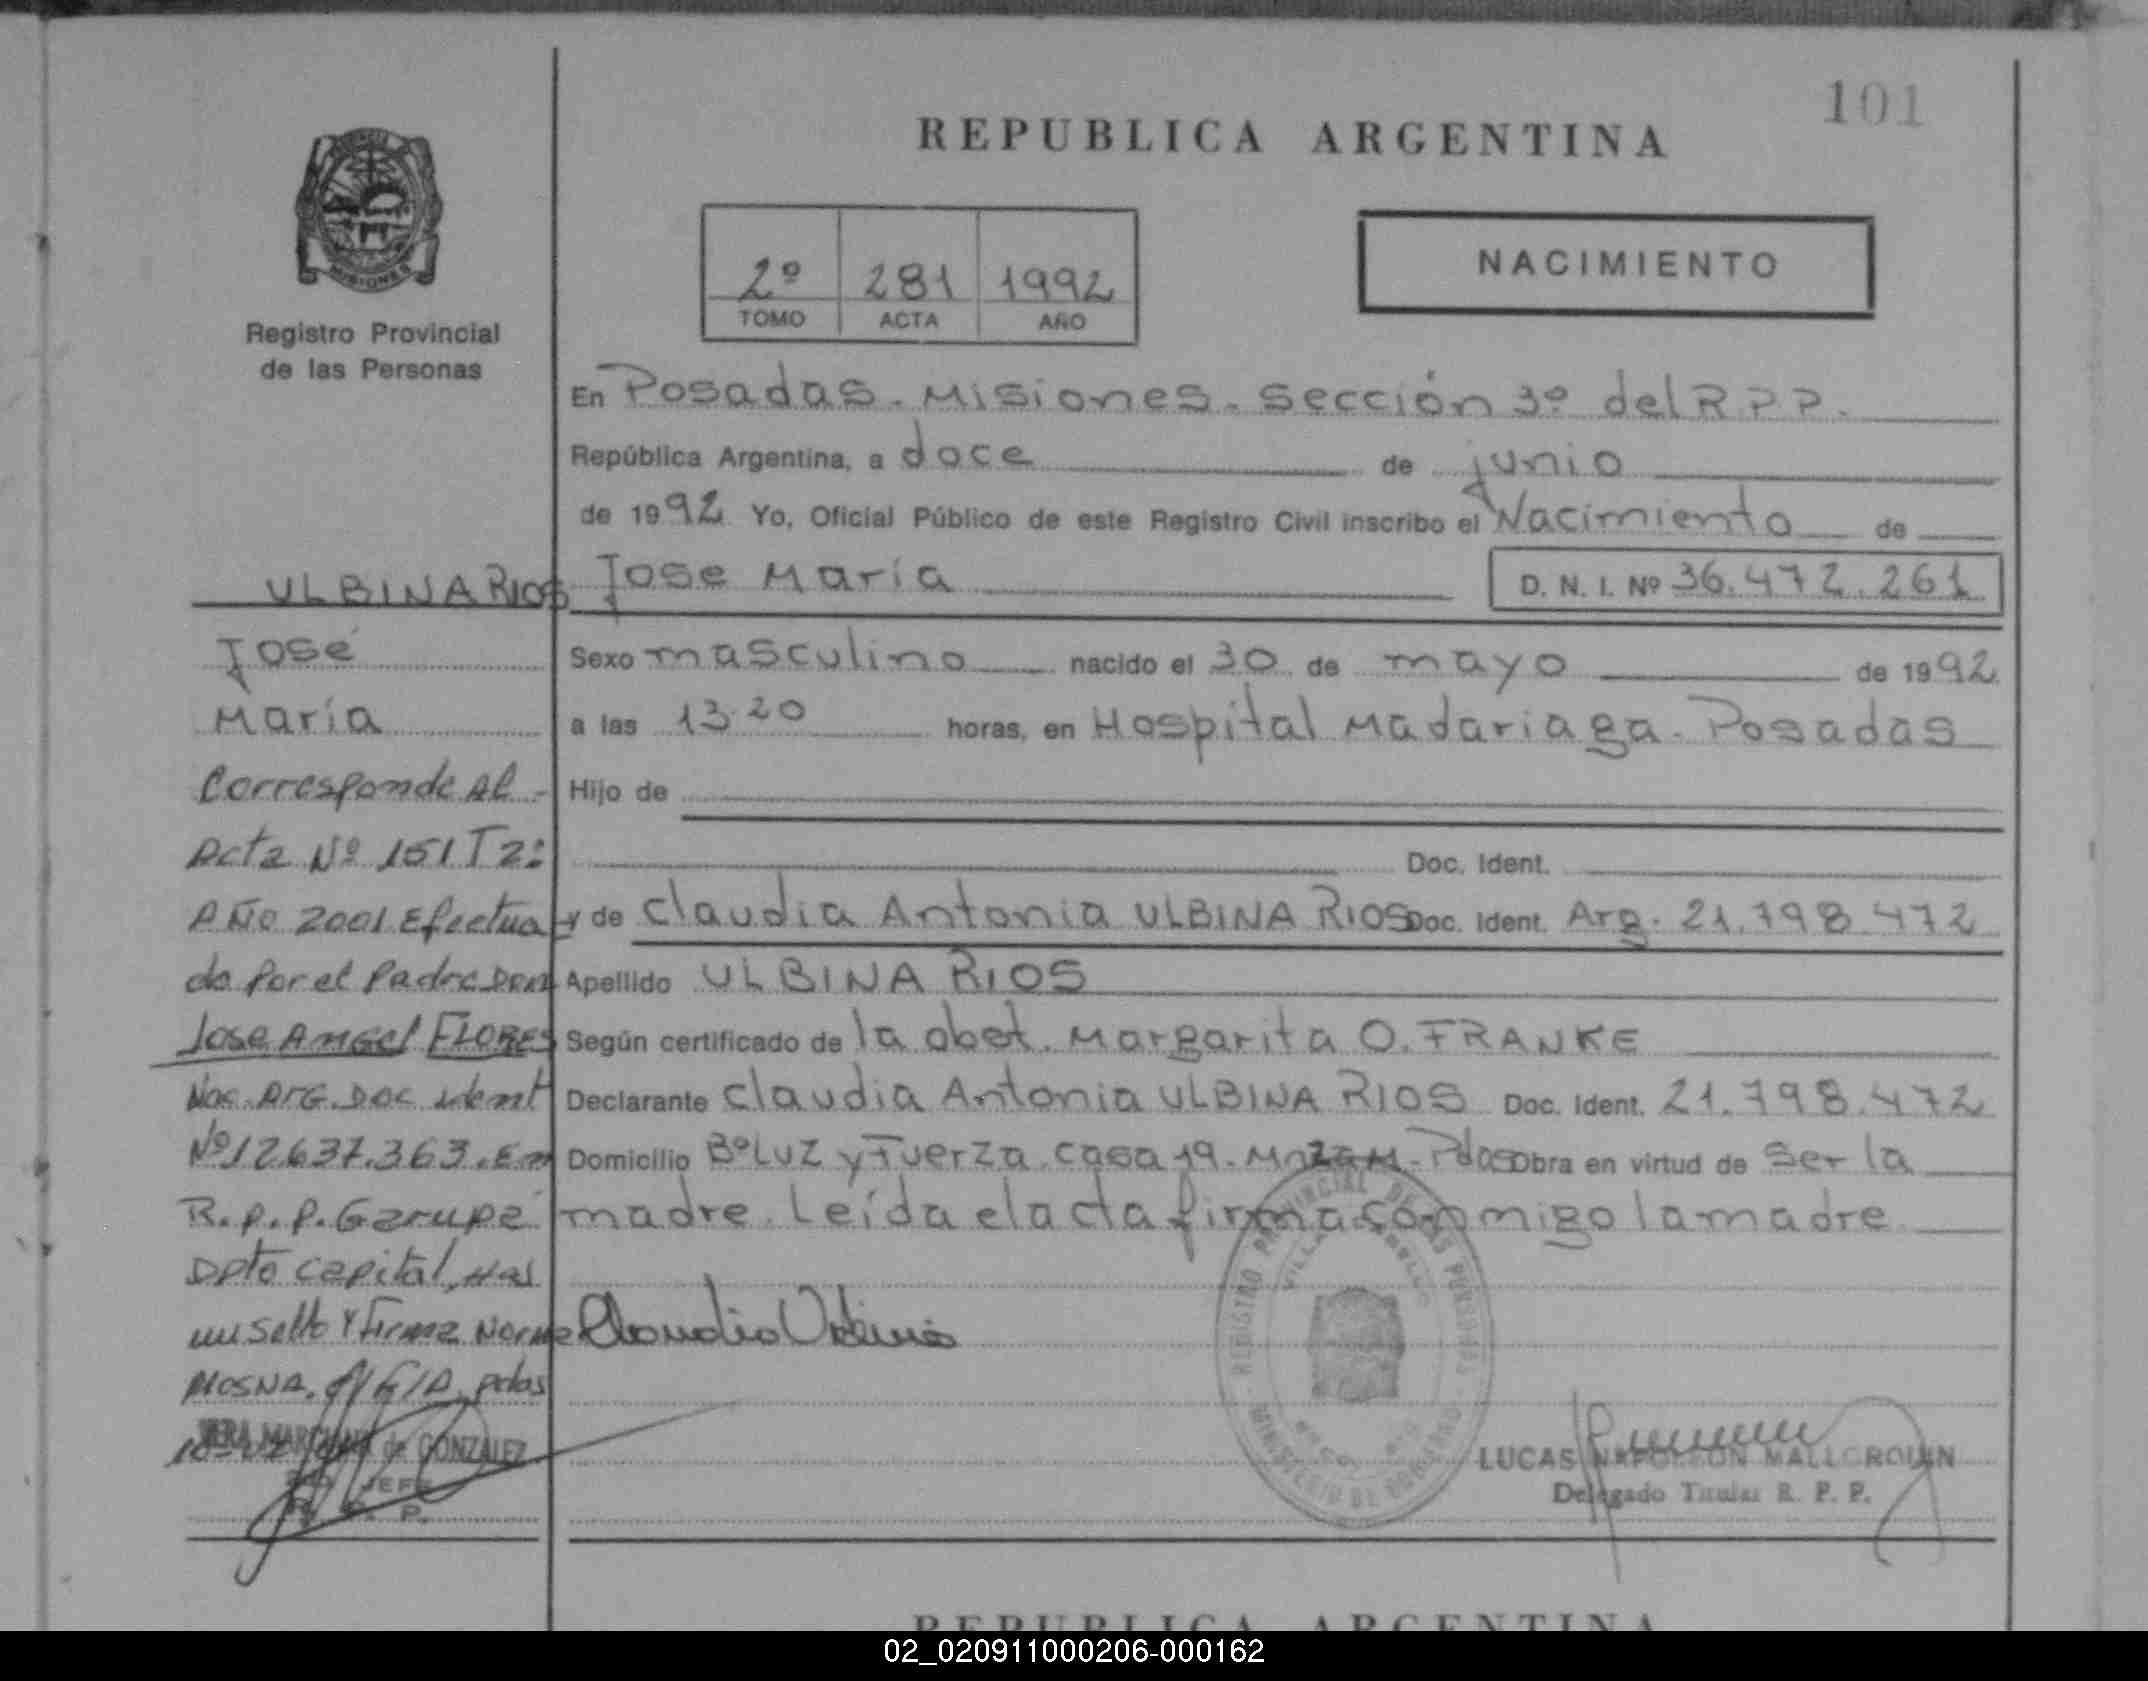 101
REPUBLICA ARGENTINA
MISIONES
Registro Provincial
de las Personas
2º 281 1992
TOMO ACTA AÑO
NACIMIENTO
En Posadas. Misiones. Sección 3º del R.P.P.
República Argentina, a doce de junio
de 1992 Yo, Oficial Público de este Registro Civil inscribo el Nacimiento de
Jose María D. N. I. Nº 36.472.261
Sexo masculino nacido el 30 de mayo de 1992
a las 13.20 horas, en Hospital Madariaga. Posadas
Hijo de
Doc. Ident.
y de Claudia Antonia ULBINA RIOS Doc. Ident. Arg. 21.798.472
Apellido ULBINA RIOS
Según certificado de la obst. Margarita O. FRANKE
Declarante Claudia Antonia ULBINA RIOS Doc. Ident. 21.798.472
Domicilio Bº Luz y Fuerza. casa 19. Pdas Obra en virtud de ser la
madre. Leída el acta firma conmigo la madre
ULBINA RIOS
José
María
Corresponde Al
Acta Nº 151 T 2º
AÑO 2001 Efectua
do por el Padre Don
Jose Angel FLORES
Nac. Arg. Doc ident
Nº 12.637.363. En
R.P.P. Garupá
Dpto Capital, Hay
un sello y Firma Norma
MOSNA. pdas
MARCIANA de GONZALEZ
JEFE
R. P. P.
Claudia Urbina
REGISTRO PROVINCIAL DE LAS PERSONAS
MINISTERIO DE GOBIERNO
LUCAS NAPOLEON MALLORQUIN
Delegado Titular R. P. P.
REPUBLICA ARGENTINA
02_020911000206-000162